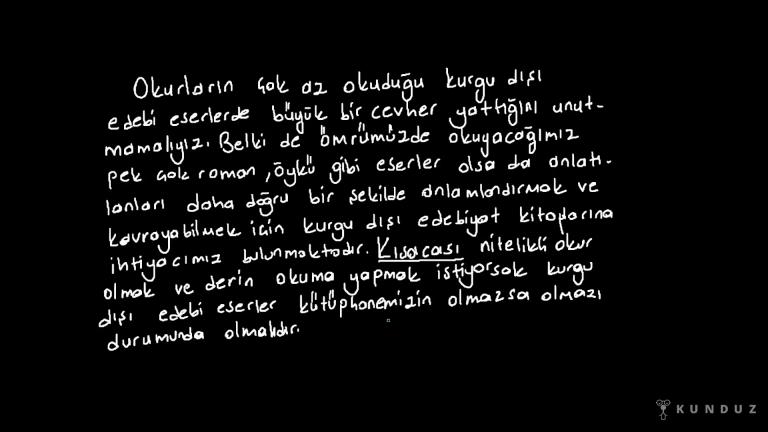 Okurların çok az okuduğu kurgu dışı
edebi eserlerde büyük bir cevher yattığını unut-
mamalıyız. Belki de ömrümüzde okuyacağımız
pek çok roman, öykü gibi eserler olsa da anlatı-
lanları daha doğru bir şekilde anlamlandırmak ve
kavrayabilmek için kurgu dışı edebiyat kitaplarına
ihtiyacımız bulunmaktadır. Kısacası nitelikli okur
olmak ve derin okuma yapmak istiyorsak kurgu
dışı edebi eserler kütüphanemizin olmazsa olmazı
durumunda olmalıdır.
KUNDUZ